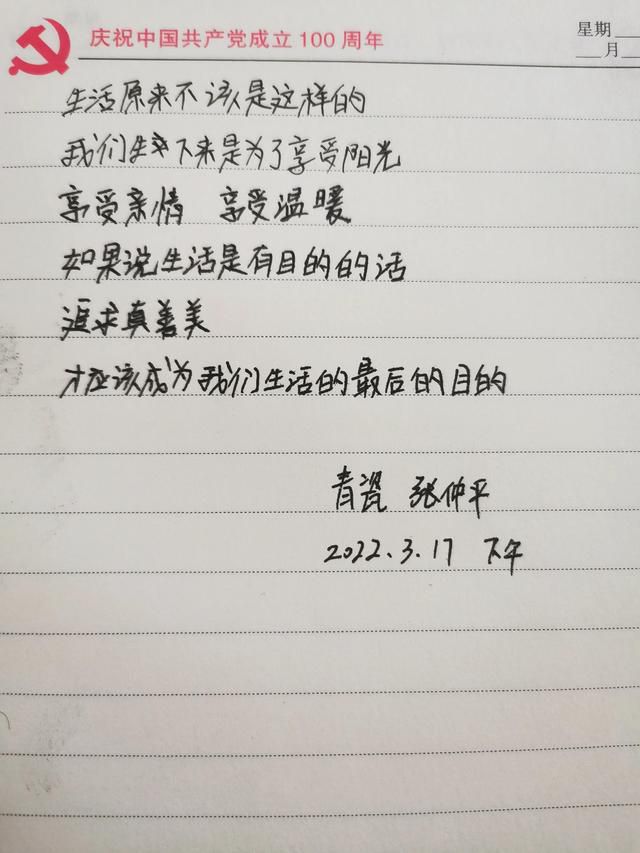 庆祝中国共产党成立100周年
星期
月
生活原来不该是这样的
我们生下来是为了享受阳光
享受亲情 享受温暖
如果说生活是有目的的话
追求真善美
才应该成为我们生活的最后的目的
青瓷 张仲平
2022.3.17 下午